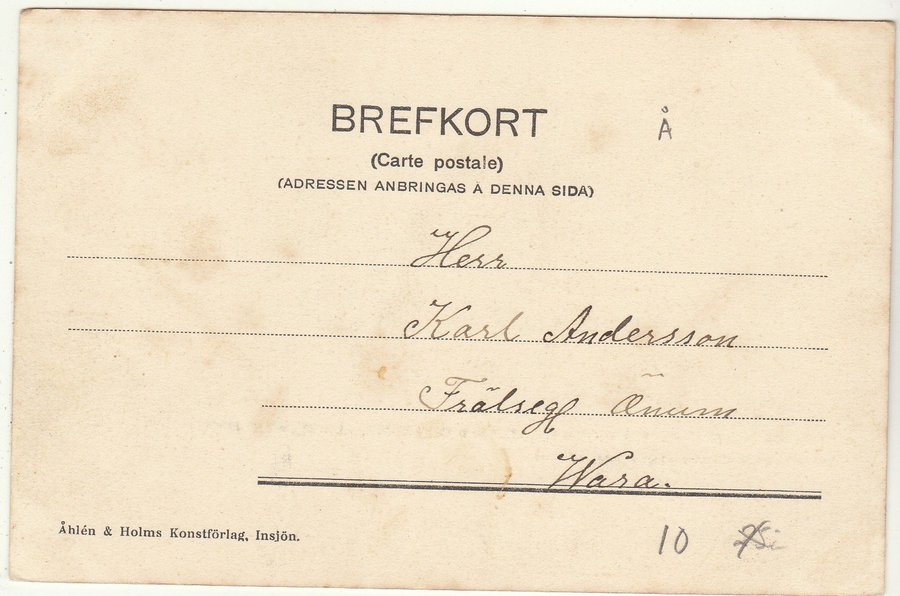 BREFKORT
Å
(Carte postale)
(ADRESSEN ANBRINGAS Å DENNA SIDA)
Herr
Karl Andersson
Wara.
Åhlén & Holms Konstförlag, Insjön.
10